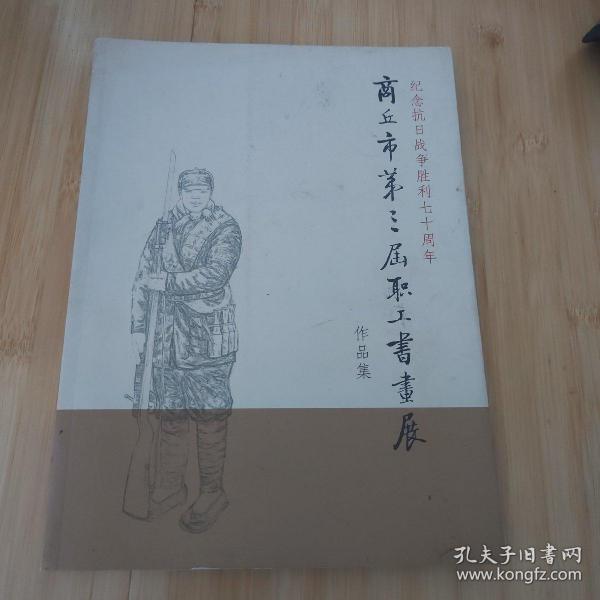 纪念抗日战争胜利七十周年
商丘市第三届职工书畫展
作品集
孔夫子旧书网
www.kongfz.com